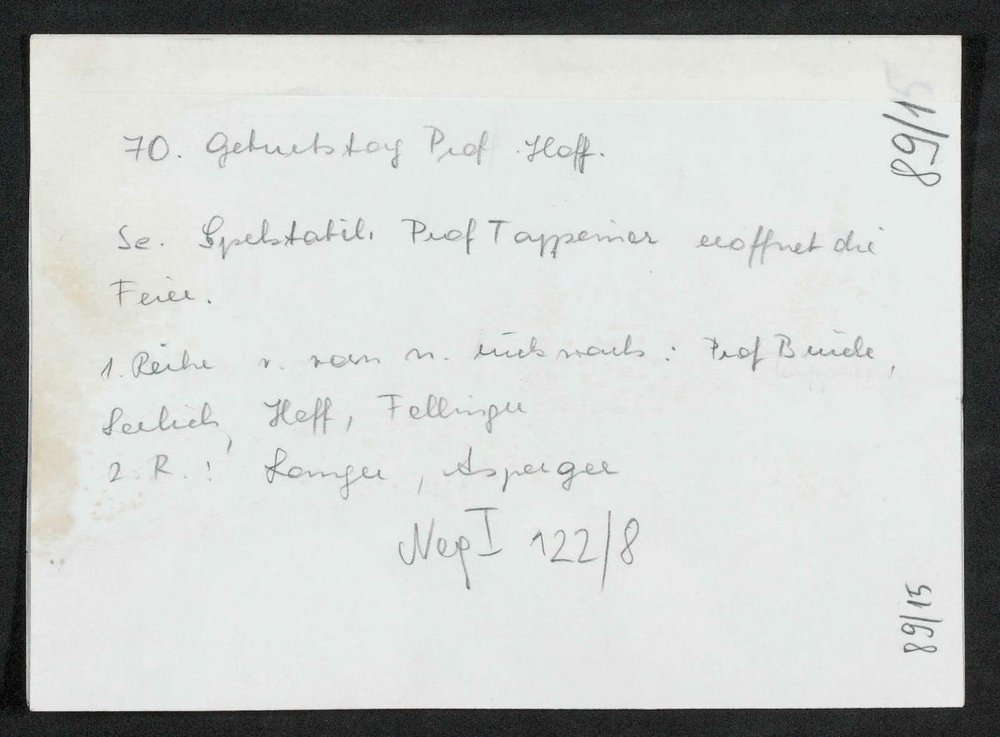 70. Geburtstag Prof. Hoff.
Se. Spektabil. Prof Tappeiner eröffnet die
Feier.
1. Reihe v. vorn n. rückwärts: Prof Breitle,
Seelich, Hoff, Fellinger
2. R.: Langer, Asperger
Neg I 122/8
89/15
89/15